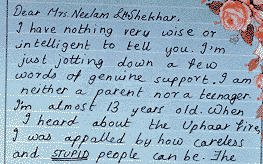 Dear Mrs. Neelam & Mr Shekhar.
I have nothing very wise or
intelligent to tell you. I'm
just jotting down a few
words of genuine support. I am
neither a parent nor a teenager.
I'm almost 13 years old. When
I heard about the Uphaar Fire,
I was appalled by how careless
and STUPID people can be. The